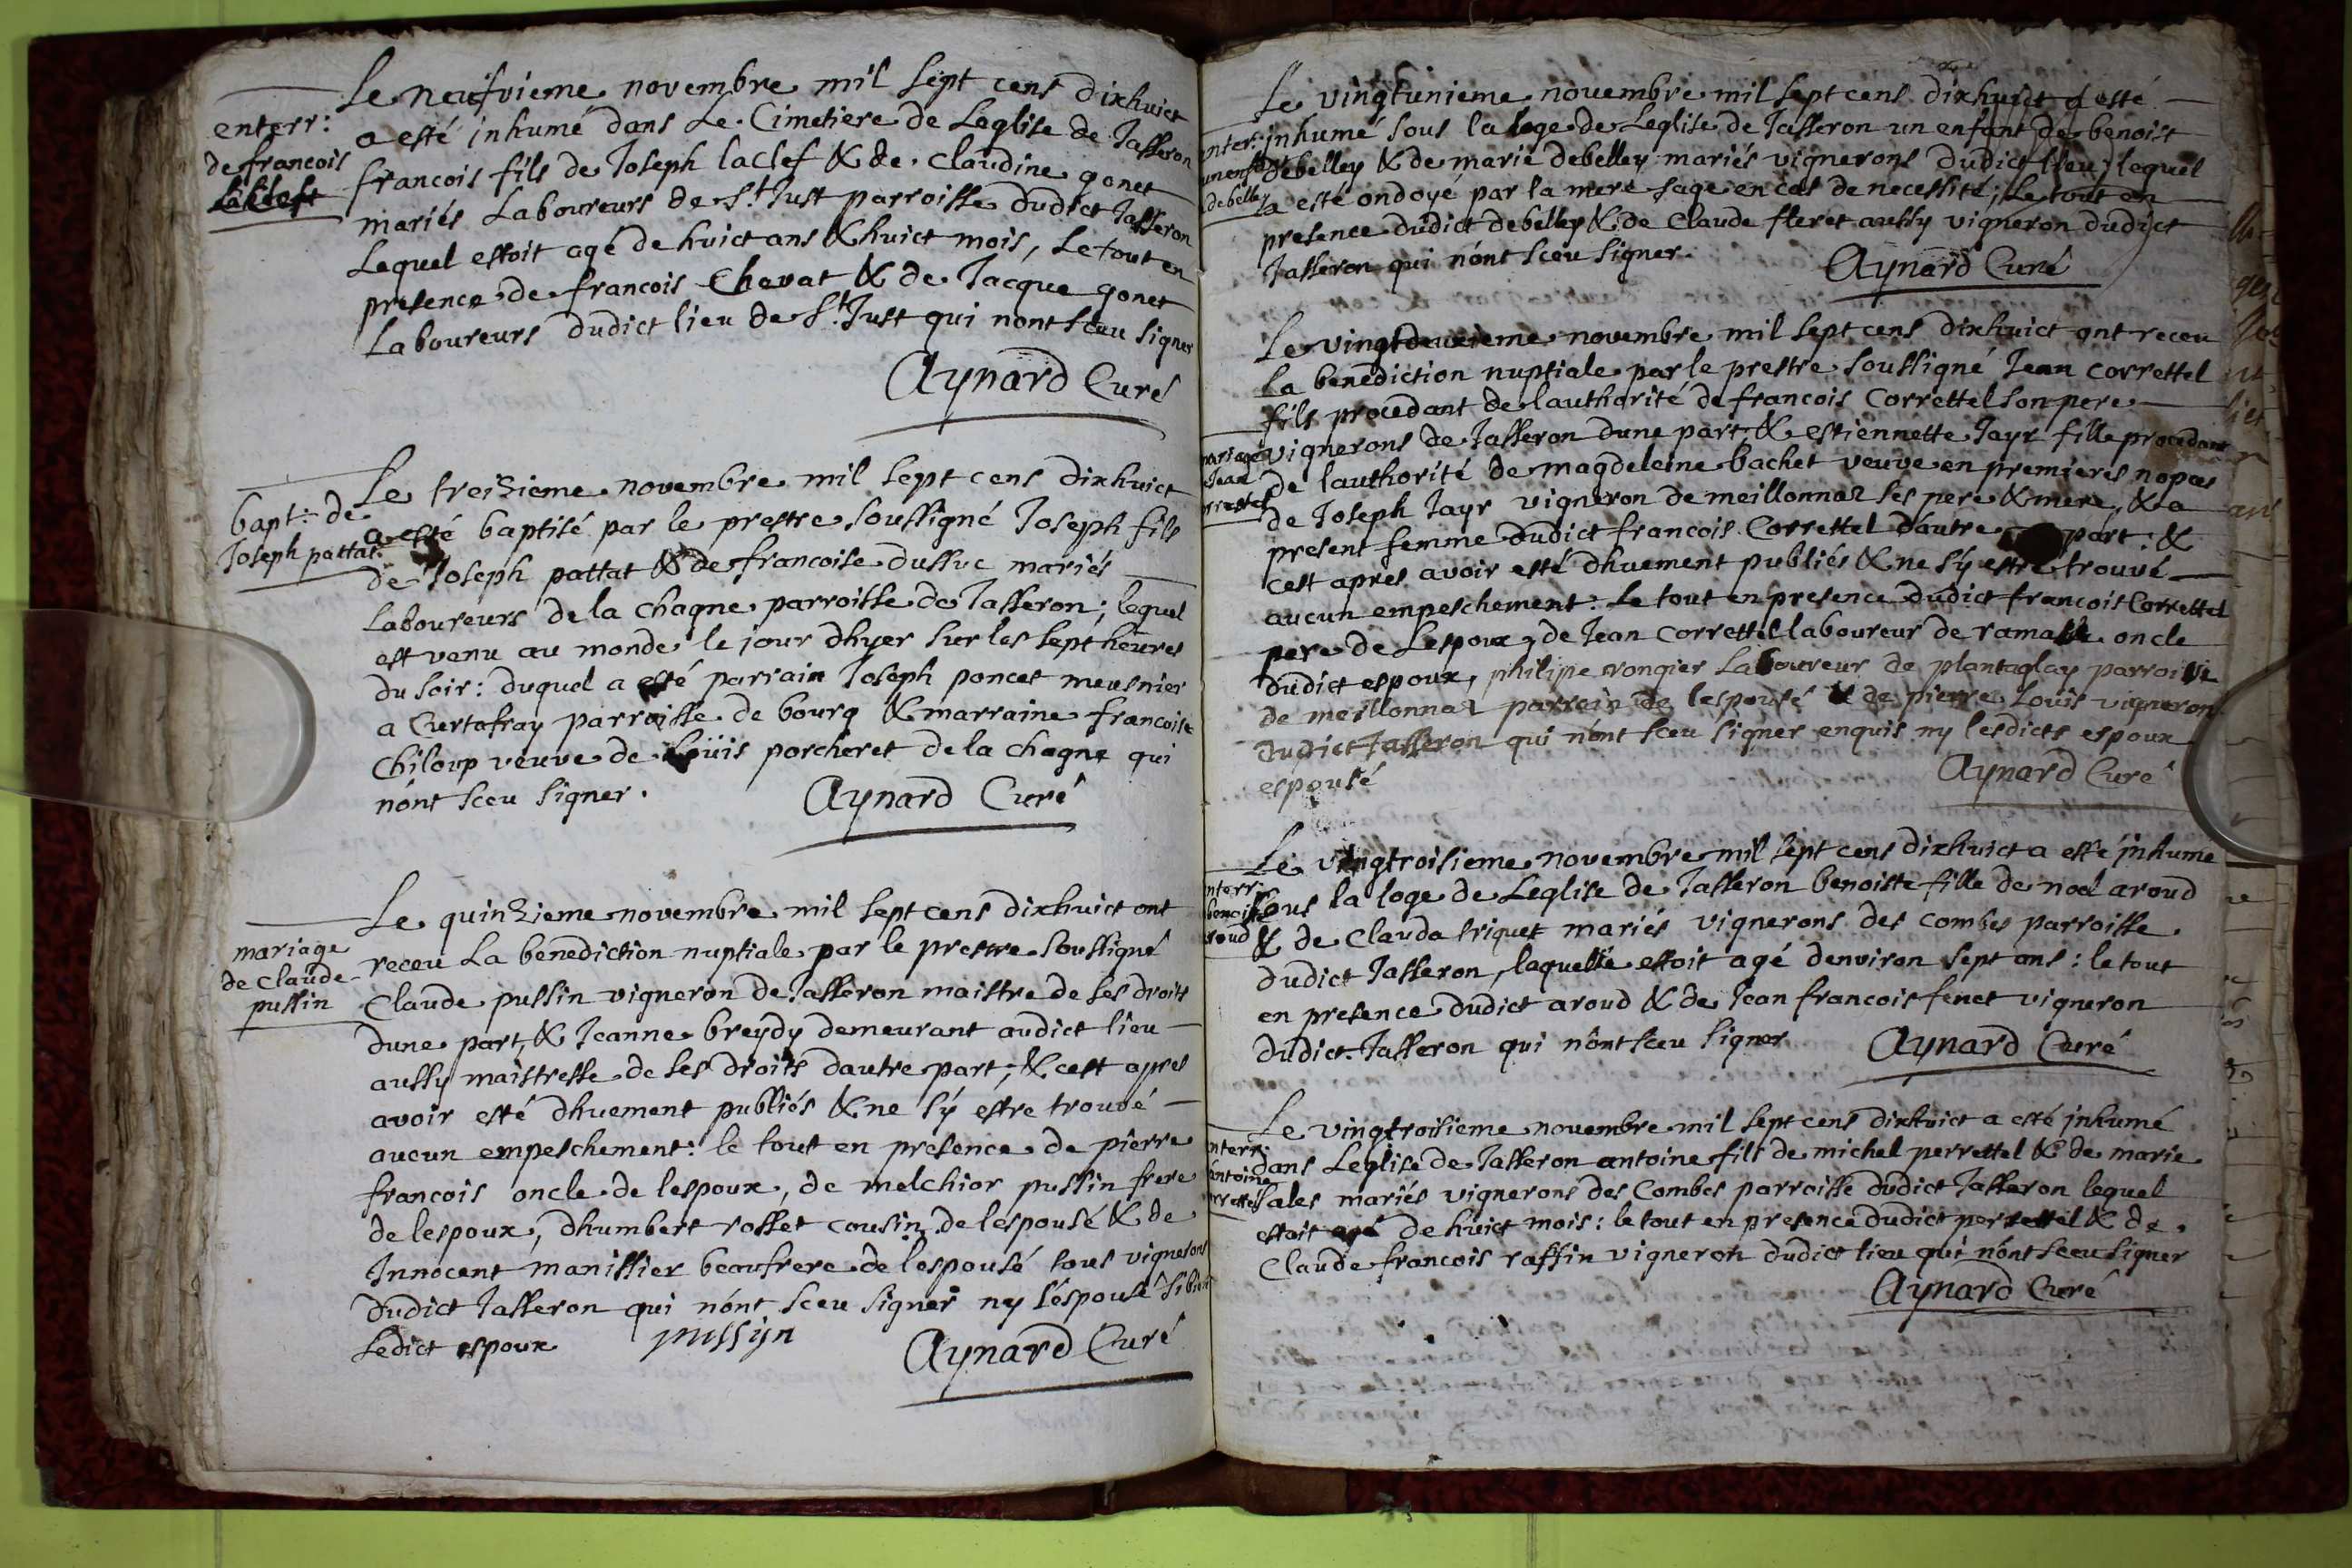 Le neufvieme novembre mil sept cens dixhuict
enterr: a esté inhumé dans Le Cimetiere de Leglise de Jasseron
de francois francois fils de Joseph laclef & de Claudine gonet
laclef mariés Laboureurs de St Just parroisse dudict Jasseron
Lequel estoit agé de huict ans & huict mois, Le tout en
presence de francois Chavat & de Jacque gonet
Laboureurs dudict lieu de St Just qui nont sceu signer
Aynard Curé
Le treizieme novembre mil sept cens dixhuict
bapt: de a esté baptisé par le prestre soussigné Joseph fils
Joseph pattat. de Joseph pattat & de francoise dussuc mariés
Laboureurs de la chagne parroisse de Jasseron; lequel
est venu au monde le jour dhyer sur les sept heures
du soir: duquel a esté parrain Joseph poncet meusnier
a Curtafray parroisse de bourg & marraine francoise
Chiloup veuve de Loüis porcheret de la chagne qui
nónt sceu signer. Aynard Curé
Le quinzieme novembre mil sept cens dixhuict ont
mariage receu La benediction nuptiale par le prestre soussigné
de Claude Claude pussin vigneron de Jasseron maistre de ses droits
pussin dune part, & Jeanne breydy demeurant audict lieu
aussy maistresse de ses droits dautre part; & cest apres
avoir esté dhuement publiés & ne sý estre trouvé
aucun empeschement: le tout en presence de pierre
francois oncle de lespoux, de melchior pussin frere
de lespoux, dhumbert rosset cousin de lespousé & de
Innocent manissier beaufrere de lespousé tous vignerons
dudict Jasseron qui nónt sceu signer ny léspousé si bien
Ledict espoux pussijn Aynard Curé
Le vingtunieme novembre mil sept cens dixhuict a esté
nter: inhumé sous la loge de Leglise de Jasseron un enfant de benoist
un enf debelley & de marie debelley mariés vignerons dudict lieu; lequel
debelley a esté ondoyé par la mere sage en cas de necessité; Le tout en
presence dudict debelley & de Claude fleret aussy vigneron dudict
Jasseron qui nónt sceu signer. Aynard Curé
Le vingtdeuxieme novembre mil sept cens dixhuict ont receu
La benediction nuptiale par le prestre soussigné Jean correttel
fils procedant de lauthorité de francois Correttel son pere
mariage vignerons de Jasseron dune part, & estiennette Jayr fille procedant
Jean de lauthorité de magdeleine bachet veuve en premieres nopces
rrettel de Joseph Jayr vigneron de meillonnaz ses pere & mere, & a
present femme dudict francois Correttel dautre part: &
cest apres avoir esté dhuement publiés & ne sý estre trouvé
aucun empeschement: Le tout en presence dudict francois Correttel
pere de Lespoux, de Jean correttel laboureur de ramasse oncle
dudict espoux, philipe rongier Laboureur de plantaglay parroisse
de meillonnaz parrain de lespousé & de pierre Loüis vigneron
dudict Jasseron qui nónt sceu signer enquis ny lesdicts espoux
espousé Aynard Curé
Le vingtroisieme novembre mil sept cens dixhuict a esté inhume
nterr: sous la loge de Leglise de Jasseron benoiste fille de noel aroud
benoiste & de Clauda triquet mariés vignerons des combes parroisse
roud dudict Jasseron, laquelle estoit agé denviron sept ans: le tout
en presence dudict aroud & de Jean francois fenet vigneron
dudict Jasseron qui nónt sceu signer Aynard Curé
Le vingtroisieme novembre mil sept cens dixhuict a esté inhumé
nterr: dans Leglise de Jasseron antoine fils de michel perrettel & de marie
antoine sales mariés vignerons des Combes parroisse dudict Jasseron lequel
rrettel estoit agé de huict mois: le tout en presence dudict perrettel & de
Claude francois raffin vigneron dudict lieu qui nónt sceu signer
Aynard Curé